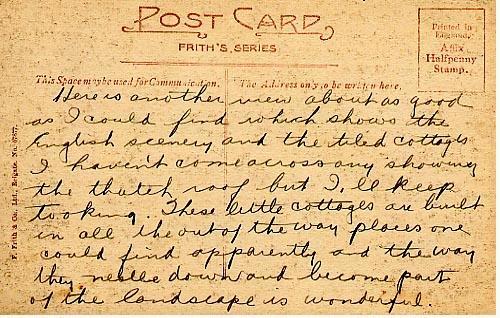 POST CARD
FRITH'S SERIES
Printed in
England.
Affix
Halfpenny
Stamp.
This Space may be used for Communication.
The Address only to be written here.
Here is another view about as good
as I could find which shows the
English scenery and the tiled cottages
I haven't come across any showing
the thatch roof but I,ll keep
looking. These little cottages are built
in all the out of the way places one
could find apparently and the way
they nestle down and become part
of the landscape is wonderful.
F. Frith & Co., Ltd., Reigate. No.